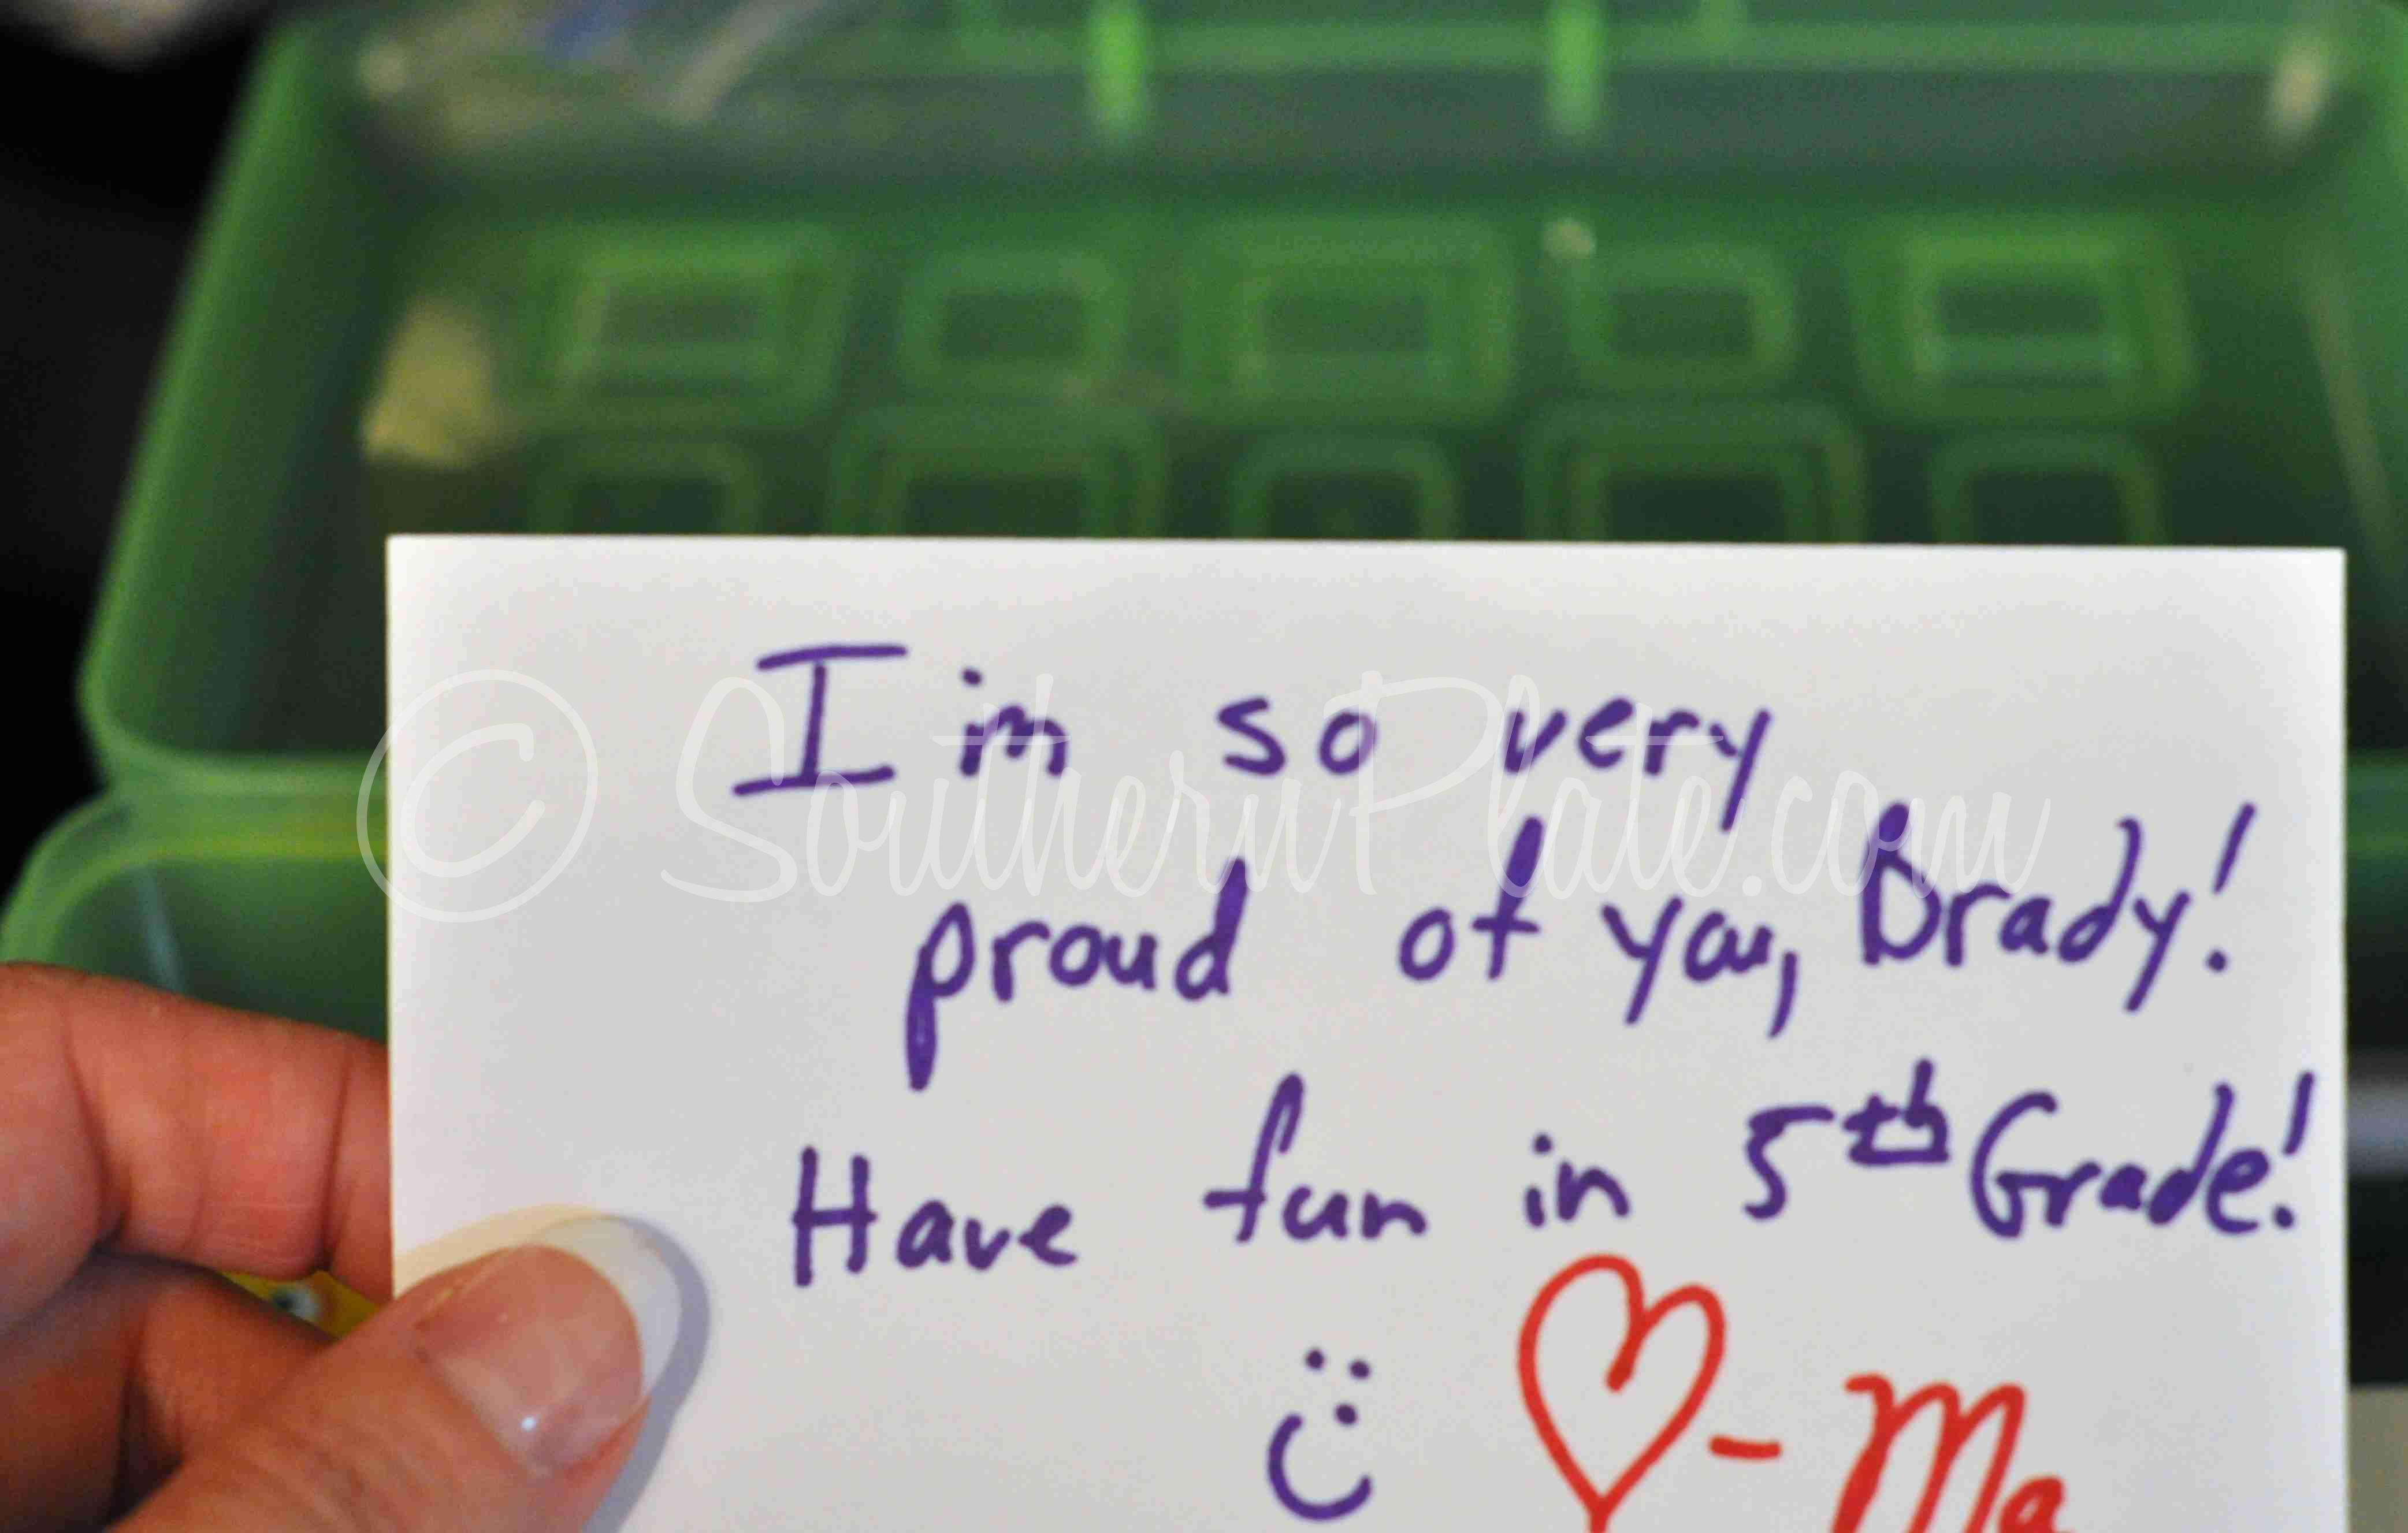 I'm so very
© SouthernPlate.com
proud of you, Brady!
Have fun in 5th Grade!
- Ma